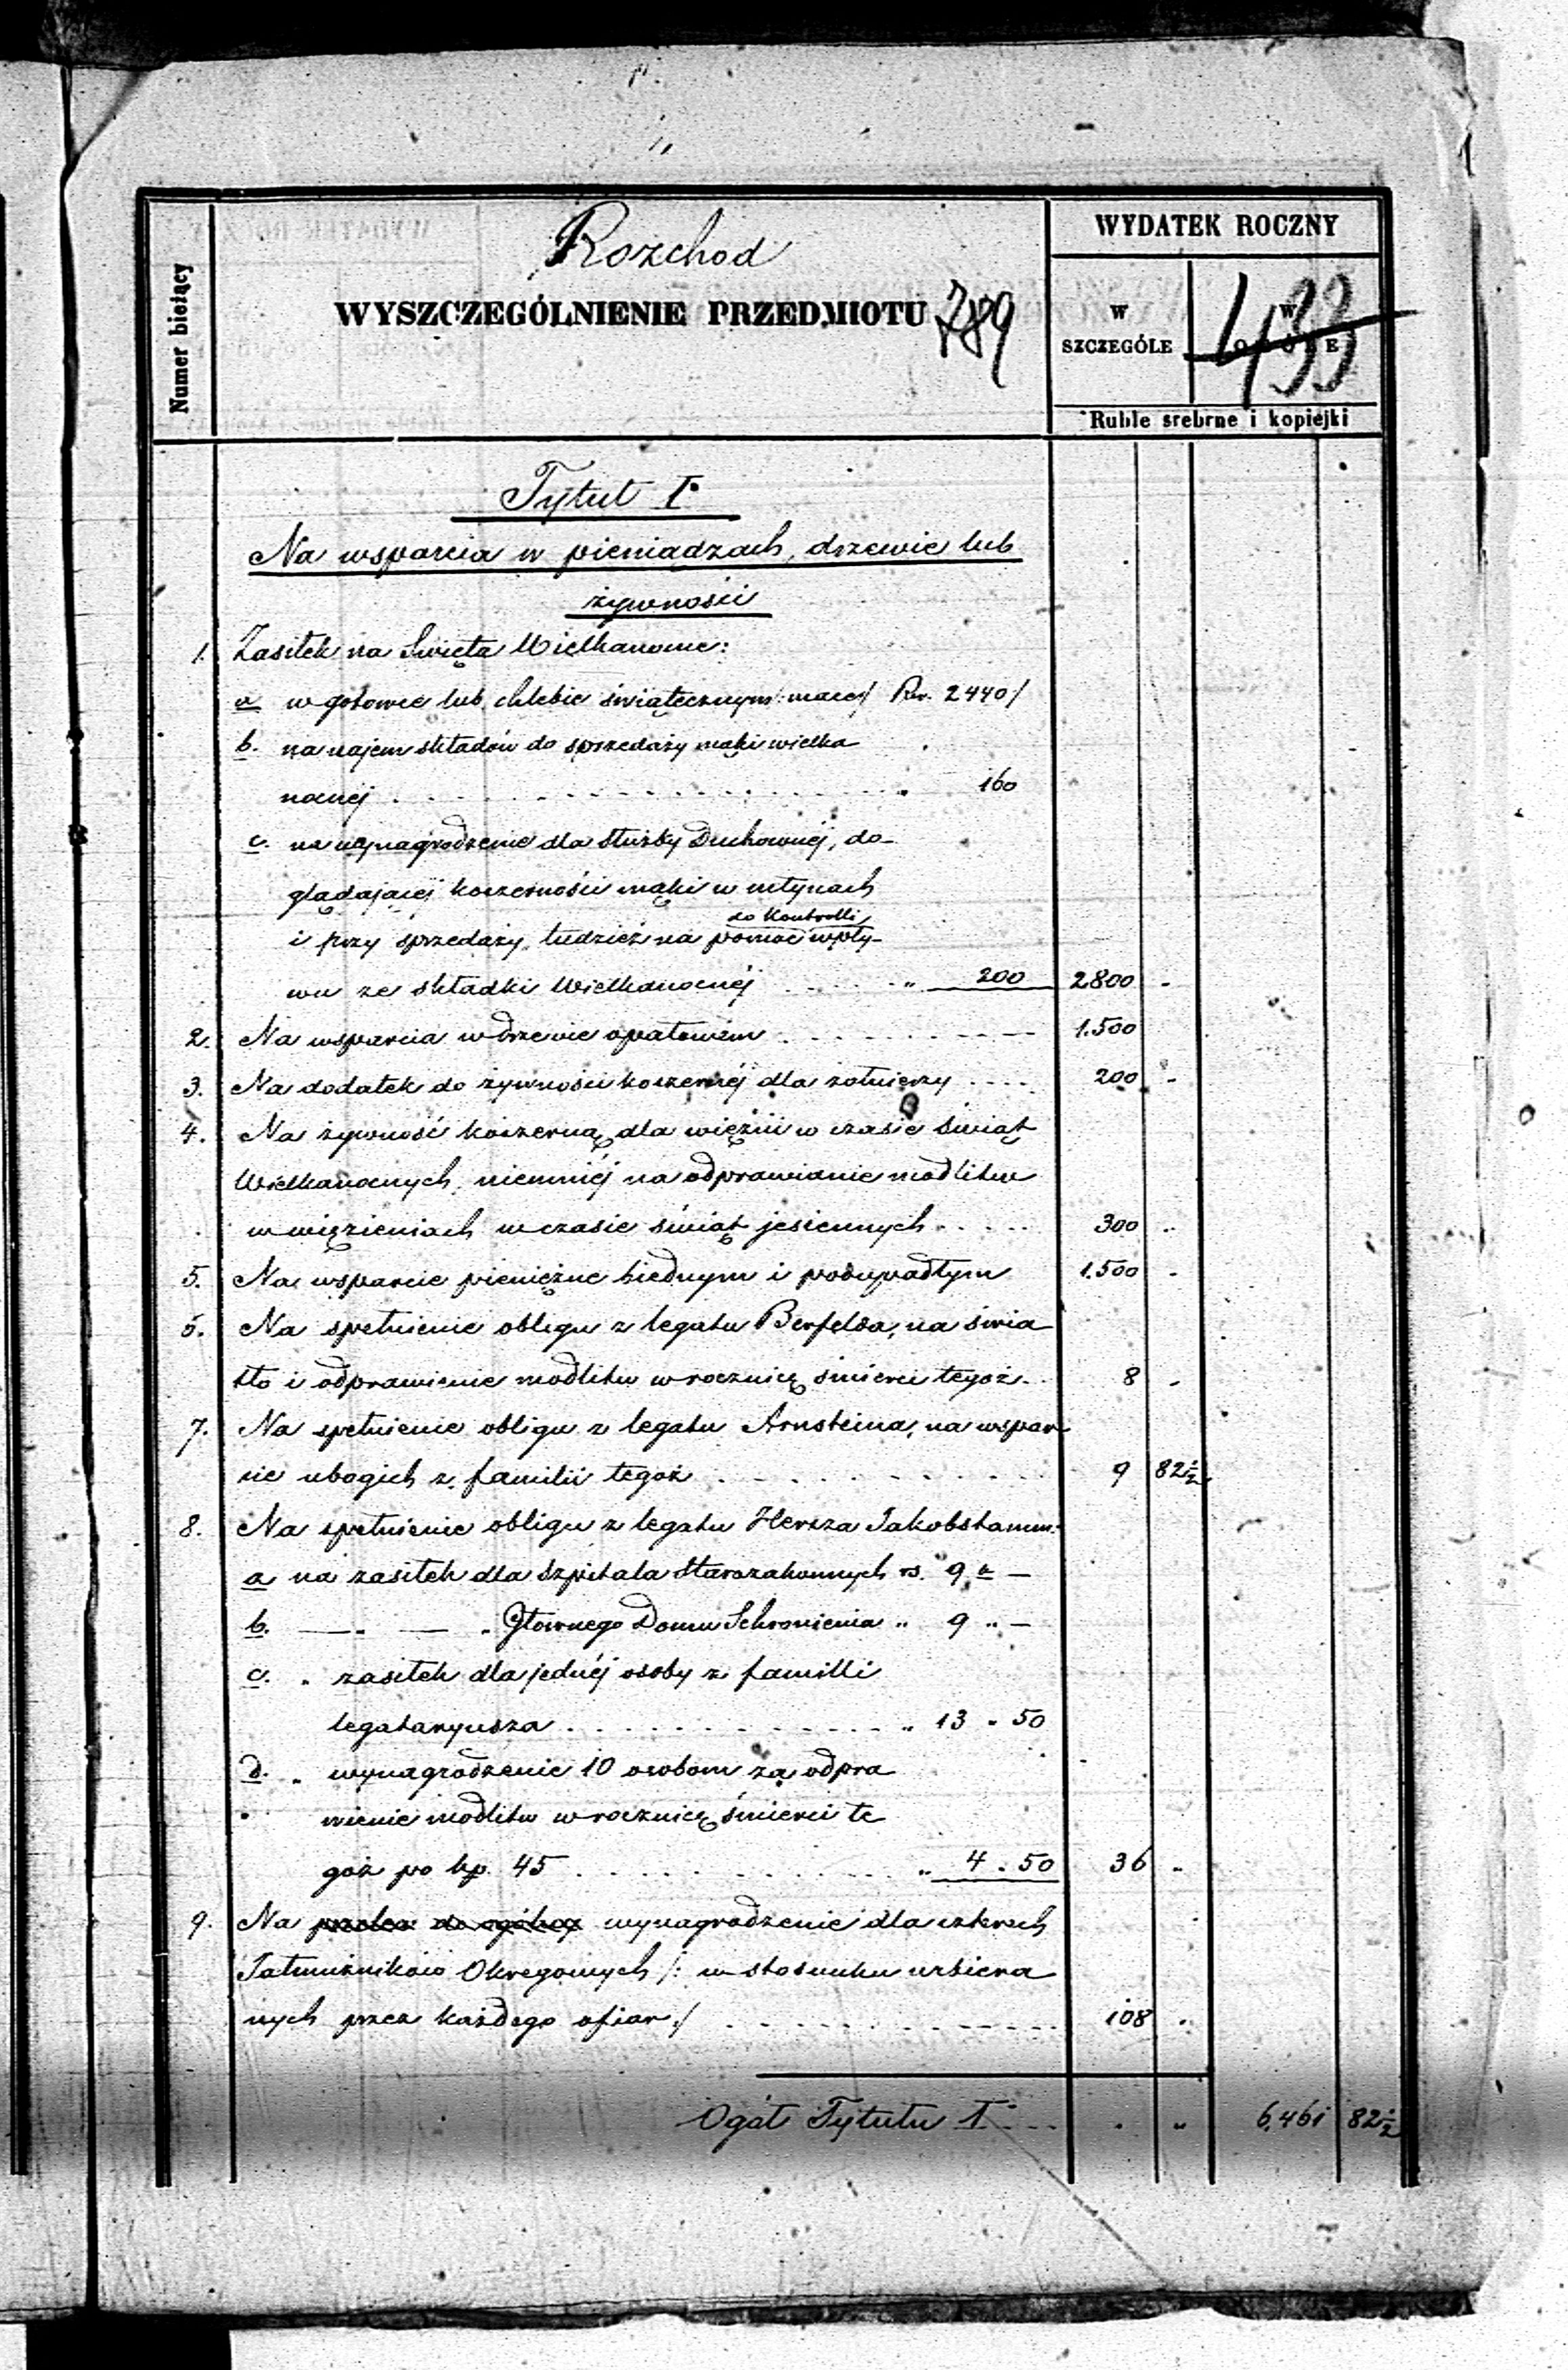 Rozchod
WYDATEK ROCZNY
Numer bieżący
WYSZCZEGÓLNIENIE PRZEDMIOTU 789
W SZCZEGÓLE
W OGÓLE
433
Ruble srebrne i kopiejki
Tytuł I
Na wsparcia w pieniądzach, drzewie lub
żywności
1. Zasiłek na Święta Wielkanocne:
a w gotowce lub chlebie świątecznym /:mace:/ Rs. 2440/
b. na najem składów do sprzedaży mąki wielka
nocnej . . . „ 160
c. na wynagrodzenie dla służby Duchownéj, do-
glądającej koszerności mąki w młynach
do Kontrolli
i przy sprzedaży, tudzież na pomoc wpły-
wu ze składki Wielkanocnéj . . . „ 200 2800 -
2. Na wsparcia w drzewie opałowém . . . 1.500
3. Na dodatek do żywności koszernéj dla żołnierzy . . . 200 -
4. Na żywność koszerną dla więźni w czasie Świąt
Wielkanocnych, niemniéj na odprawianie modlitw
w więzieniach w czasie świąt jesiennych . . . 300 „
5. Na wsparcie pieniężne biednym i podupadłym 1.500 -
6. Na spełnienie obligu z legatu Berfelda, na świa
tło i odprawienie modlitw w rocznicę śmierci tegoż . . 8 -
7. Na spełnienie obligu z legatu Arnsteina, na wspar
cie ubogich z familii tegoż . . . 9 82½
8. Na spełnienie obligu z legatu Hersza Jakobstamm:
a na zasiłek dla Szpitala Starozakonnych rs. 9 k —
b. —„— — „ Głównego Domu Schronienia „ 9 „ —
c. „ zasiłek dla jednéj osoby z familli
legataryusza . . . „ 13 „ 50
d. „ wynagrodzenie 10 osobom za odpra
wienie modlitw w rocznicę śmierci te
goż po kp. 45 . . . „ 4 . 50 36 „
9. Na wynagrodzenie dla czterech
Jałmużników Okręgowych /: w stosunku uzbiera
nych przez każdego ofiar :/ . . . 108 .
Ogół Tytułu I . . . „ 6,461 82½